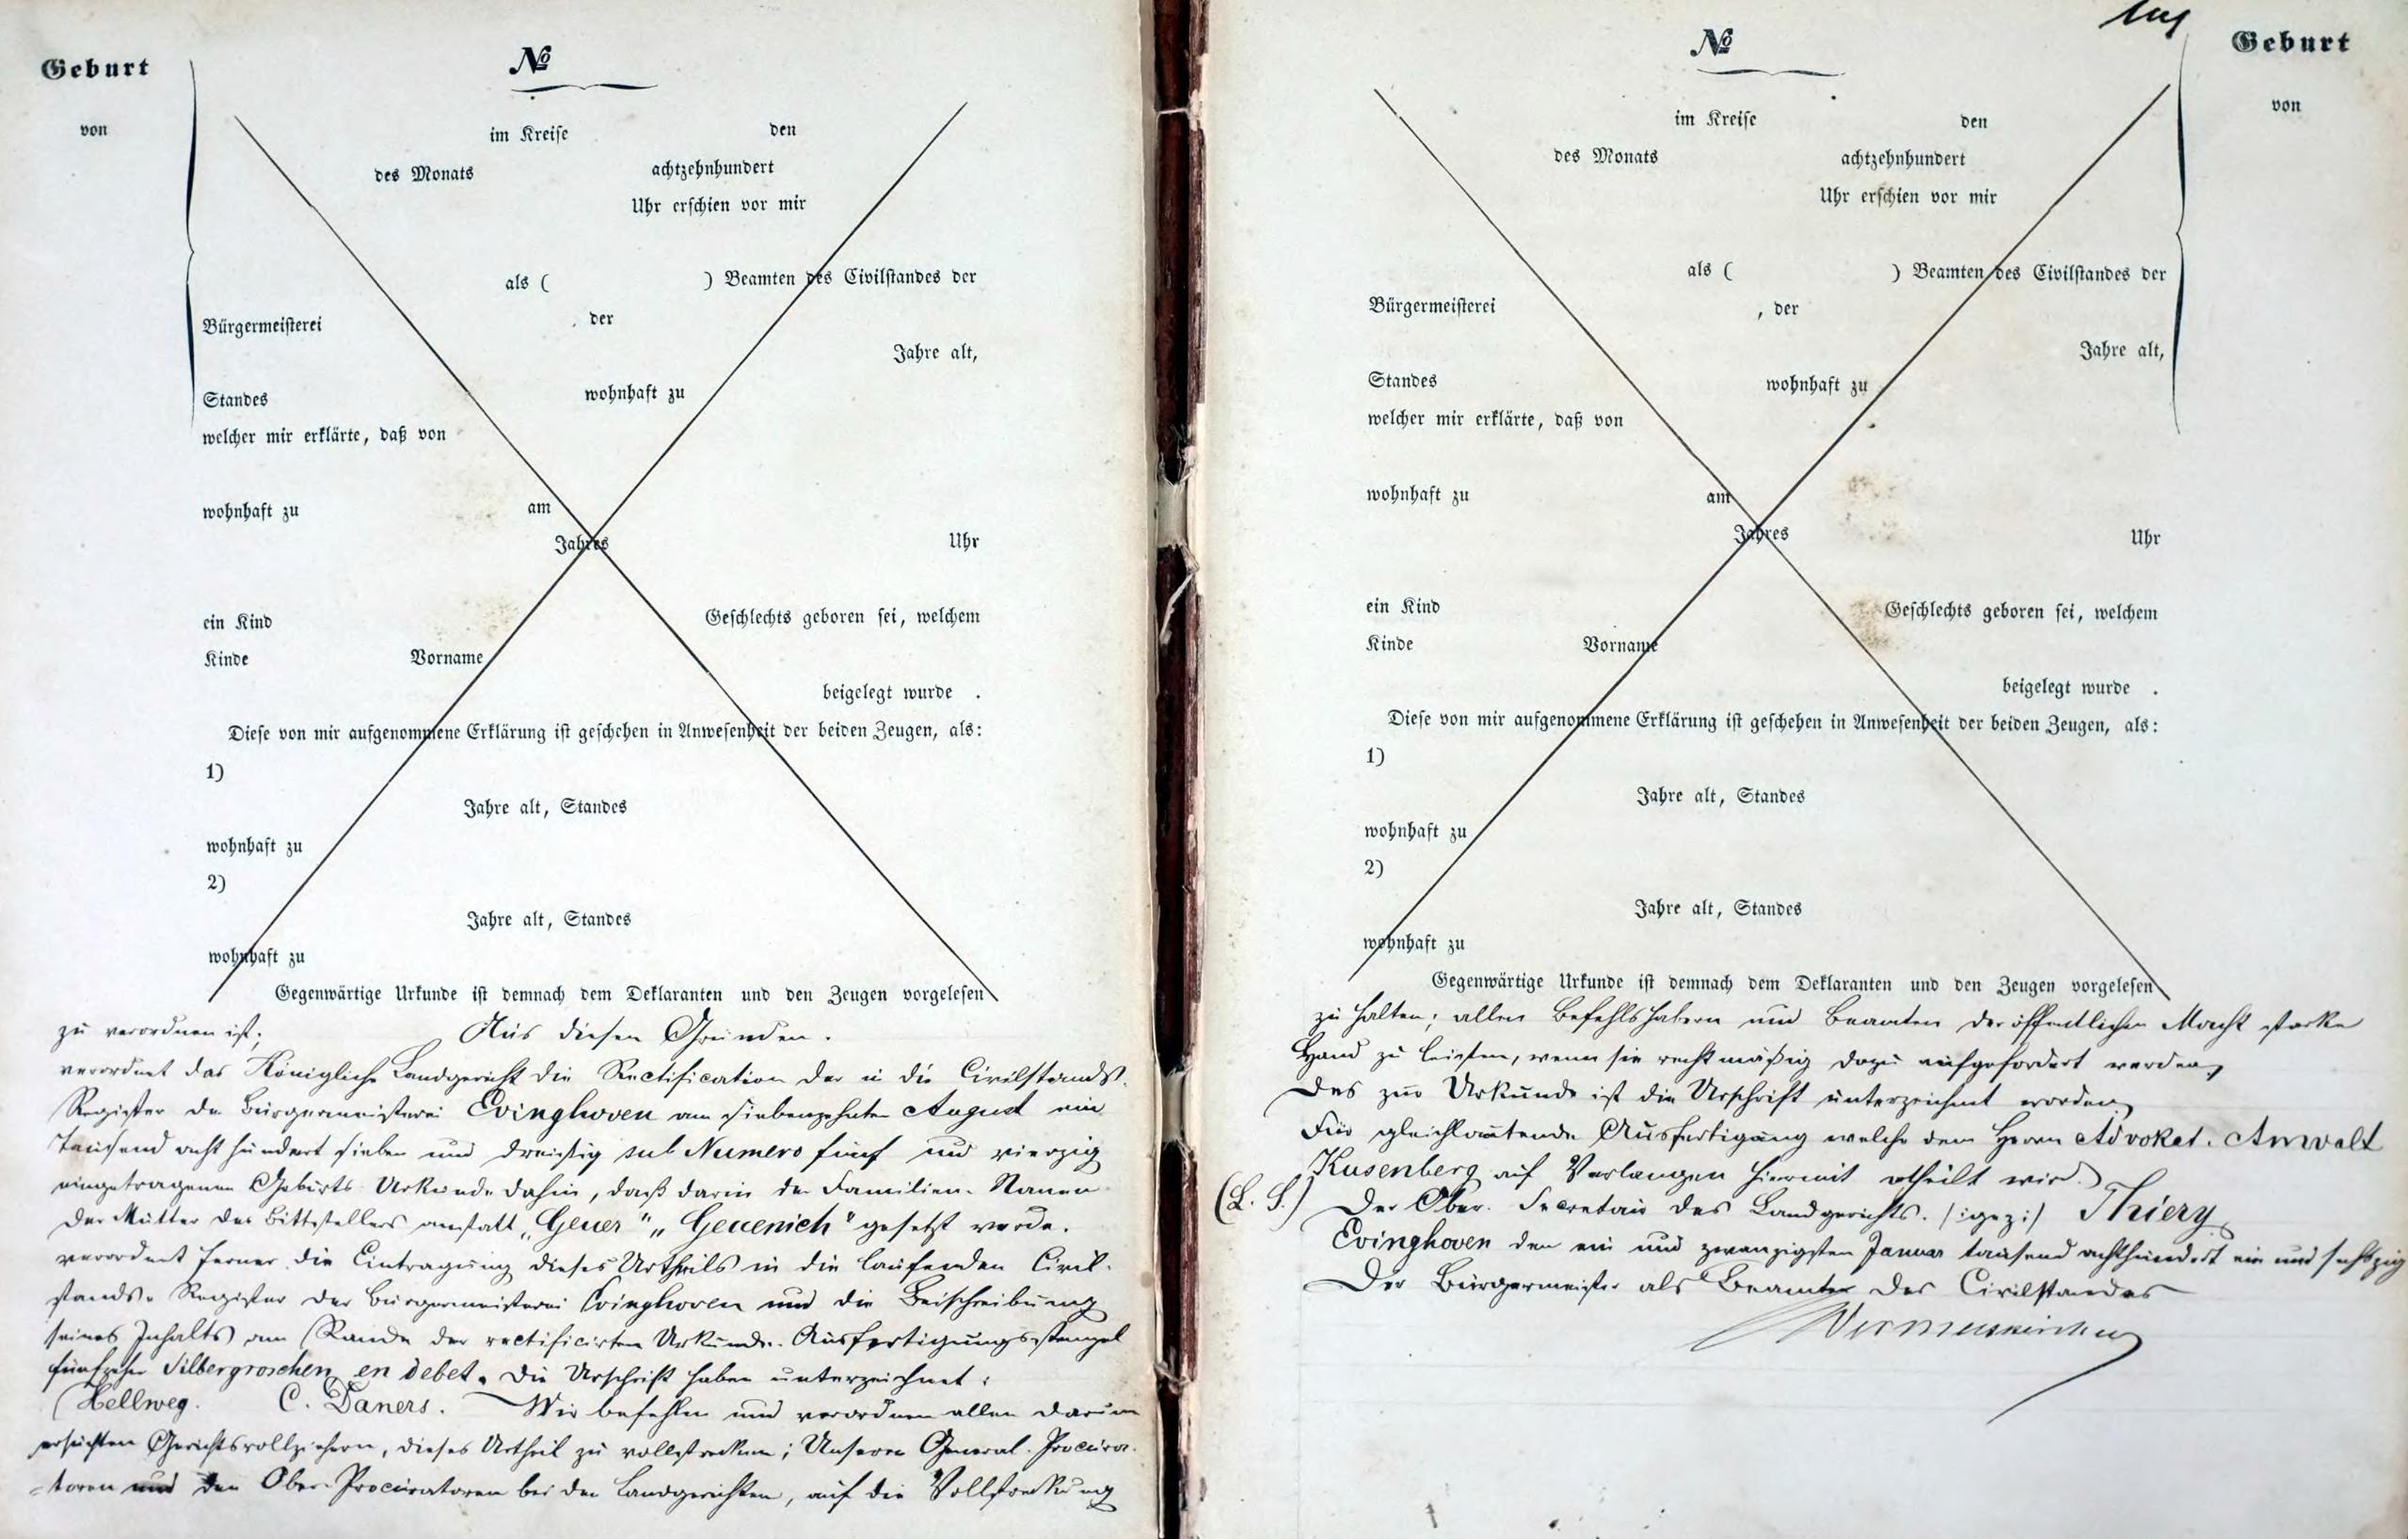 Geburt
von
№
im Kreise den
des Monats achtzehnhundert
Uhr erschien vor mir
als ( ) Beamten des Civilstandes der
Bürgermeisterei , der
Jahre alt,
Standes wohnhaft zu
welcher mir erklärte, daß von
wohnhaft zu am
Jahres Uhr
ein Kind Geschlechts geboren sei, welchem
Kinde Vorname
beigelegt wurde .
Diese von mir aufgenommene Erklärung ist geschehen in Anwesenheit der beiden Zeugen, als:
1)
Jahre alt, Standes
wohnhaft zu
2)
Jahre alt, Standes
wohnhaft zu
Gegenwärtige Urkunde ist demnach dem Deklaranten und den Zeugen vorgelesen
zu verordnen ist; Aus diesen Gründen.
verordnet das Königliche Landgericht die Rectification der in die Civilstands-
Register der Bürgermeisterei Evinghoven am siebenzehnten August ein
Tausend acht hundert sieben und dreißig sub Numero fünf und vierzig
eingetragenen Geburts Urkunde dahin, daß darin der Familien-Namen
der Mutter des Bittstellers anstatt „Geuer" „Geuenich" gesetzt werde.
verordnet ferner die Eintragung dieses Urtheils in die laufenden Civil-
stands-Register der Bürgermeisterei Evinghoven und die Beischreibung
seines Inhalts am Rande der rectificirten Urkunde. Ausfertigungsstempel
fünfzehn Silbergroschen en debet. Die Urschrift haben unterzeichnet:
Hellweg. C. Daners. Wir befehlen und verordnen allen darum
ersuchten Gerichtsvollziehern, dieses Urtheil zu vollstrecken; Unseren General-Procura-
-toren und den Ober-Procuratoren bei den Landgerichten, auf die Vollstreckung
Geburt
von
№
im Kreise den
des Monats achtzehnhundert
Uhr erschien vor mir
als ( ) Beamten des Civilstandes der
Bürgermeisterei , der
Jahre alt,
Standes wohnhaft zu
welcher mir erklärte, daß von
wohnhaft zu am
Jahres Uhr
ein Kind Geschlechts geboren sei, welchem
Kinde Vorname
beigelegt wurde .
Diese von mir aufgenommene Erklärung ist geschehen in Anwesenheit der beiden Zeugen, als:
1)
Jahre alt, Standes
wohnhaft zu
2)
Jahre alt, Standes
wohnhaft zu
Gegenwärtige Urkunde ist demnach dem Deklaranten und den Zeugen vorgelesen
zu halten; allen Befehlshabern und Beamten der öffentlichen Macht starke
Hand zu leisten, wenn sie rechtmäßig dazu aufgefordert werden,
Des zur Urkunde ist die Urschrift unterzeichnet worden,
Für gleichlautende Ausfertigung welche dem Herrn Advokat-Anwalt
Kusenberg auf Verlangen hiermit ertheilt wird.
(L. S.) Der Ober-Secretair des Landgerichts. /:gez:/ Thiery
Evinghoven den ein und zwanzigsten Januar tausend achthundert ein und sechszig
Der Bürgermeister als Beamter des Civilstandes
Wermerskirchen